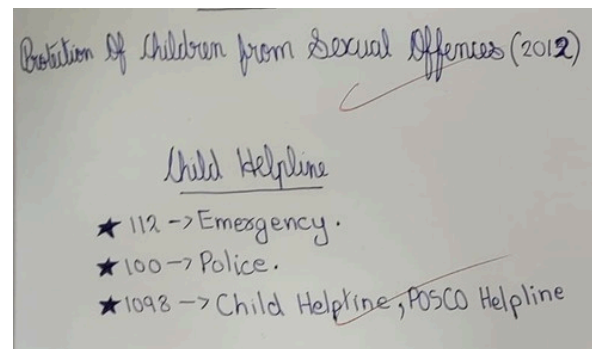 Protection Of Children from Sexual Offences (2012)
Child Helpline
★ 112 -> Emergency.
★ 100 -> Police.
★ 1098 -> Child Helpline, POSCO Helpline